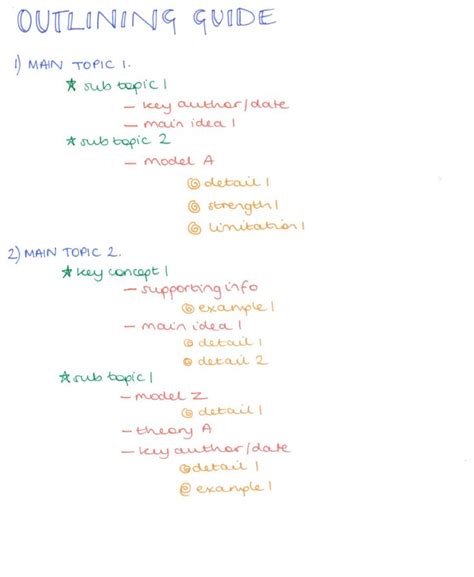 OUTLINING GUIDE
1) MAIN TOPIC 1.
★ sub topic 1
– key author/date
– main idea 1
★ sub topic 2
– model A
◎ detail 1
◎ strength 1
◎ limitation 1
2) MAIN TOPIC 2.
★ key concept 1
– supporting info
◎ example 1
– main idea 1
◎ detail 1
◎ detail 2
★ sub topic 1
– model Z
◎ detail 1
– theory A
– key author/date
◎ detail 1
◎ example 1